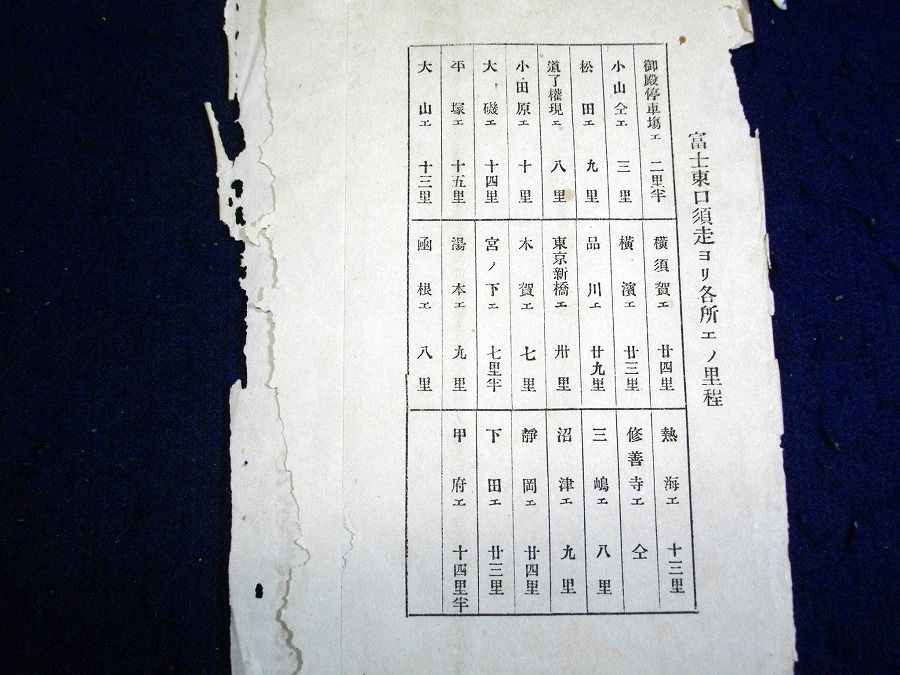 富士東口須走ヨリ各所エノ里程
御殿停車塲エ 二里半
小山仝エ 三里
松田エ 九里
道了權現エ 八里
小田原エ 十里
大磯エ 十四里
平塚エ 十五里
大山エ 十三里
橫須賀エ 廿四里
橫濱エ 廿三里
品川エ 廿九里
東京新橋エ 卅里
木賀エ 七里
宮ノ下エ 七里半
湯本エ 九里
凾根エ 八里
熱海エ 十三里
修善寺エ 仝
三嶋エ 八里
沼津エ 九里
靜岡エ 廿四里
下田エ 廿三里
甲府エ 十四里半